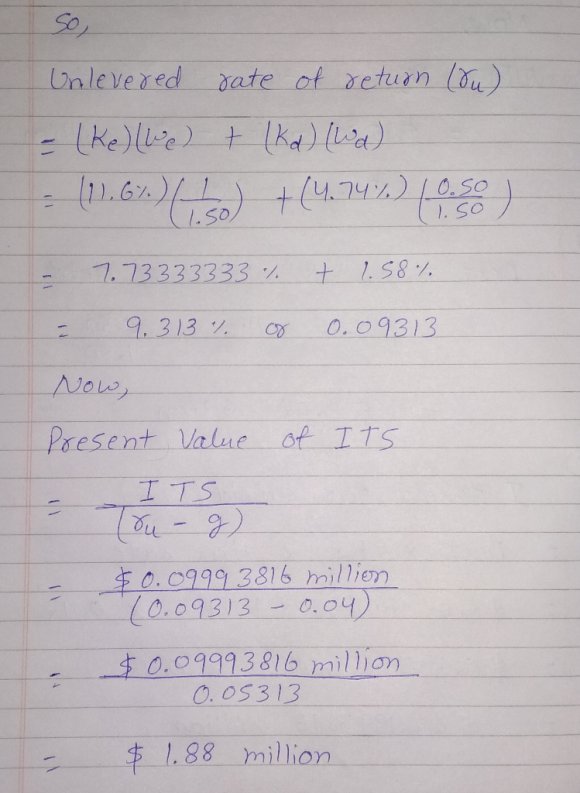 So,
Unlevered rate of return (ru)
= (Ke)(We) + (Kd)(Wd)
= (11.6%)(1/1.50) + (4.74%)(0.50/1.50)
= 7.73333333% + 1.58%
= 9.313% or 0.09313
Now,
Present Value of ITS
= ITS/(ru - g)
= $0.09993816 million/(0.09313 - 0.04)
= $0.09993816 million/0.05313
= $1.88 million